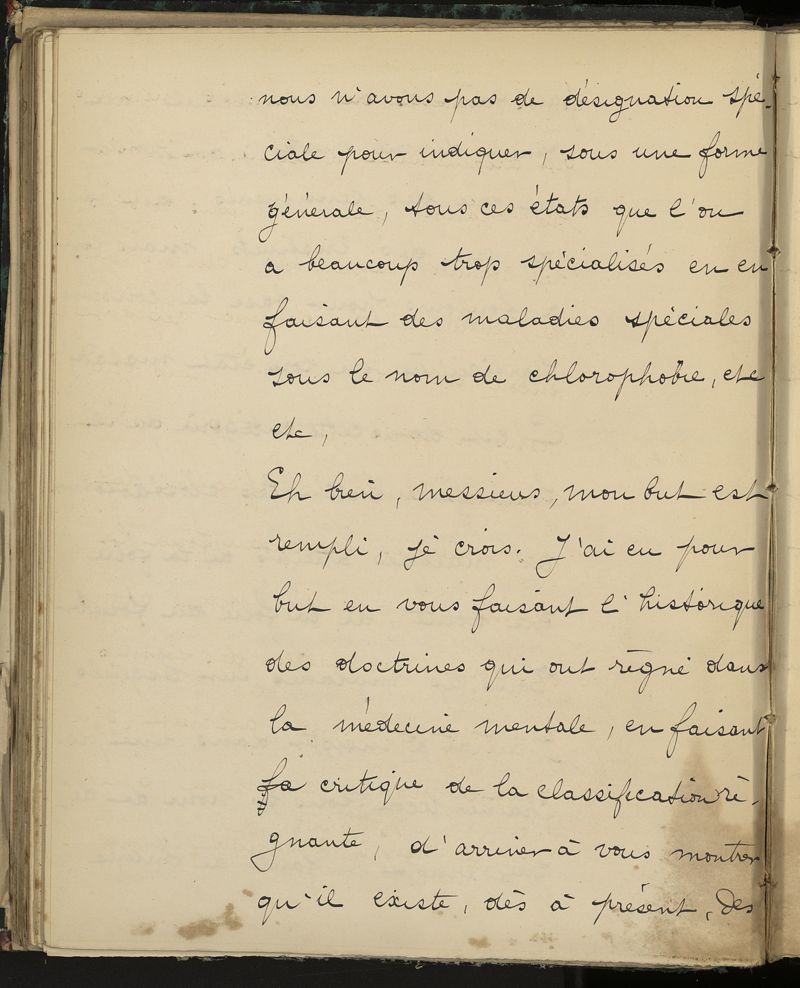 nous n'avons pas de désignation spé-
ciale pour indiquer, sous une forme
générale, tous ces états que l'on
a beaucoup trop spécialisés en en
faisant des maladies spéciales
sous le nom de chlorophobie, etc
etc,
Eh bien, messieurs, mon but est
rempli, je crois. J'ai eu pour
but en vous faisant l'historique
des doctrines qui ont régné dans
la médecine mentale, en faisant
la critique de la classification ré-
gnante, d'arriver à vous montrer
qu'il existe, dès à présent, des